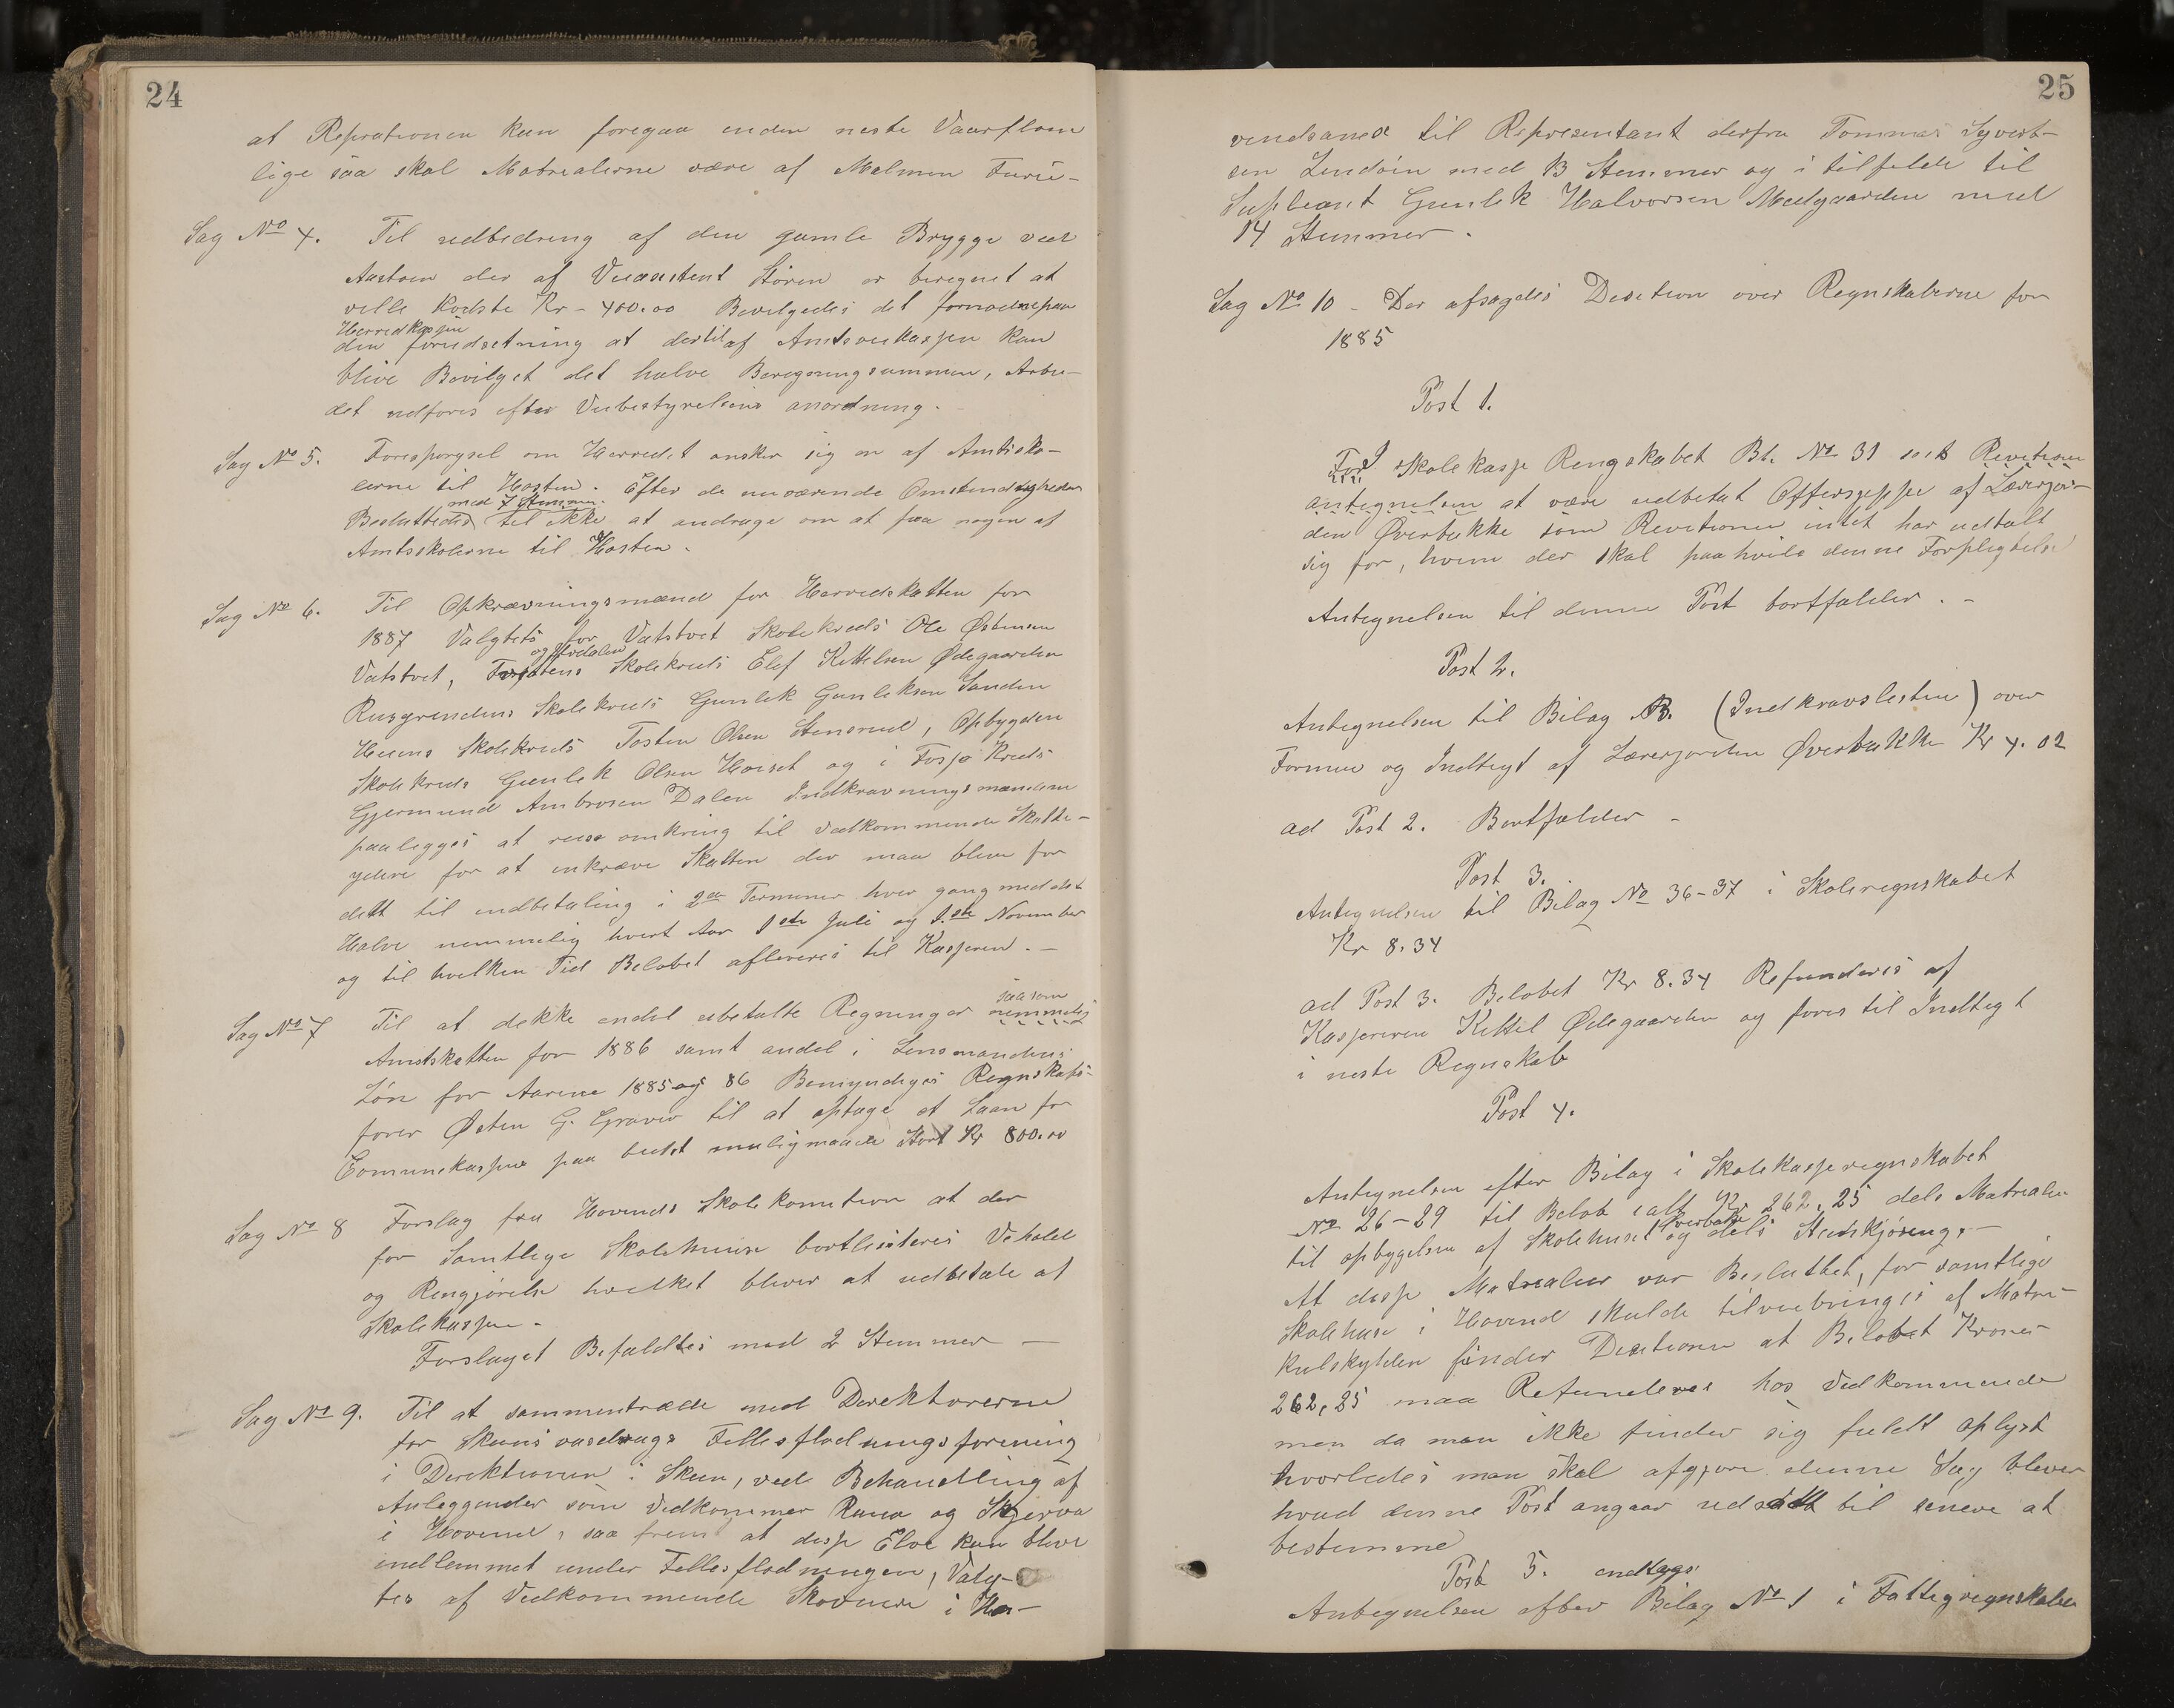 24
at Reprationen kan foregaa enden neste Vaarflom
lige saa skal Matrealerne være af Malmen Furu-
Sag No 4. Til udbedring af den gamle Brygge ved
Aastoen der af Veiassistent Støren er beregnet at
ville kodste Kr - 400.00 Bevilgedes det fornødne paa
Herredkassen
den forudsetning at dertil af Amtsveikassen kan
blive Bevilget det halve Beregningsummen, Arbei-
det udføres efter Veibestyrelsens anordning.
Sag No 5. Foresporgsel om Herredet ønsker sig en af Amtssko-
lerne til Høsten. Efter de nuværende Omstendigheder
med 7 Stemmer.
Besluttedes til ikke at andrage om at faa nogen af
Amtsskolerne til Høsten.
Sag No 6. Til Opkrævningsmænd for Herredskatten for
1887 Valgtes for Vatstvet Skolekreds Ole Østensen
og Jordalen
Vatstvet, Skolekreds Elef Kittelsen Ødegaarden
Rusgrendens Skolekreds Gunlek Gunleksen Sanden
Skolekreds Tosten Olsen Stensrud, Opbygden
Skolekreds Gunlek Olsen Hovset og i Fosjø Kreds
Gjermund Ambrosen Dalen Indkrævningsmændene
paalegges at reise omkring til vedkommende Skatte-
ydere for at inkræve Skatten der maa blive for
delt til indbetaling i 2de Terminer hver gang med det
Halve nemmelig hvert Aar 1ste Juli og 1ste November
og til hvilken Tid Beløbet afleveres til Kasseren. -
Sag No 7 Til at dekke endel ubetalte Regninger nemmelig
saasom
Amtskatten for 1886 samt andel i Lensmandens
Løn for Aarene 1885 og 86 Bemyndiges Regnskabs-
fører Østen G. Graver til at optage et Laan for
Comunekassen paa bedst muligmaade Stort Kr 800.00
Sag No 8 Forslag fra Hovinds Skolekomition at der
for Samtlige Skolehuuse bortlisiteres Vehold
og Rengjørelse hvilket bliver at udbetale af
Skolekassen.
Forslaget Befaldtes med 2 Stemmer -
Sag No 9. Til at sammentræde med Direktørerne
for Skiens vasdrags Fellesflødningsforening
i Direktionen i Skien, ved Behandling af
Anleggender som vedkommer Raua og Skjerva
i Hovind, saa fremt at disse Elve kan blive
indlemmet under Fellesflødningen, Valg-
tes af Vedkommende Skoveiere i Ho-
25
vindsaned til Representant derfra Tommas Syvert-
sen Lindein med 13 Stemmer og i tilfelde til
Supleant Gunlek Halvorsen Medgaarden med
14 Stemmer.
Sag No 10 - Der afsagdes Desition over Regnskaberne for
1885
Post 1.
For I Skolekasse Rengskabet Bl. No 31 Revition
antegnelsen at være udbetalt af Lærerjor-
den Øverbække som Revitionen intet har udtalt
sig for, hvem der skal paahvile denne Forpligtelse
Antegnelsen til denne Post bortfalder. -
Post 2.
Antegnelsen til Bilag B. (Indkravslesten) over
Formue og Indtegt af Lærerjorden Øverbækken Kr 4.02
ad Post 2. Bortfalder -
Post 3.
Antegnelsen til Bilag No 36-37 i Skoleregnskabet
Kr 8.34
ad Post 3. Beløbet Kr 8.34 Refunderes af
Kassereren Kittil Ødegaarden og føres til Indtegt
i neste Regnskab
Post 4.
Antegnelsen efter Bilag i Skolekasseregnskabet
No 26-29 til Beløb ialt Kr 262,25 dels Matrealer
Øverbøk
til opbygelsen af Skolehuset og dels Stedskjøring. -
At disse Matrealier var Besluttet, for samtlige
Skolehuse i Hovind skulde tilveiebringes af Matri-
kulskylden finder Desitionen at Beløbet Kroner
262,25 maa Refunderes hos vedkommende
men da man ikke finder sig fuldt oplyst
hvorledes man skal afgjøre denne Sag bliver
hvad denne Post angaar udsatt til senere at
bestemme
Post 5. indtægt
Antegnelsen efter Bilag No 1 i Fattigregnskabet